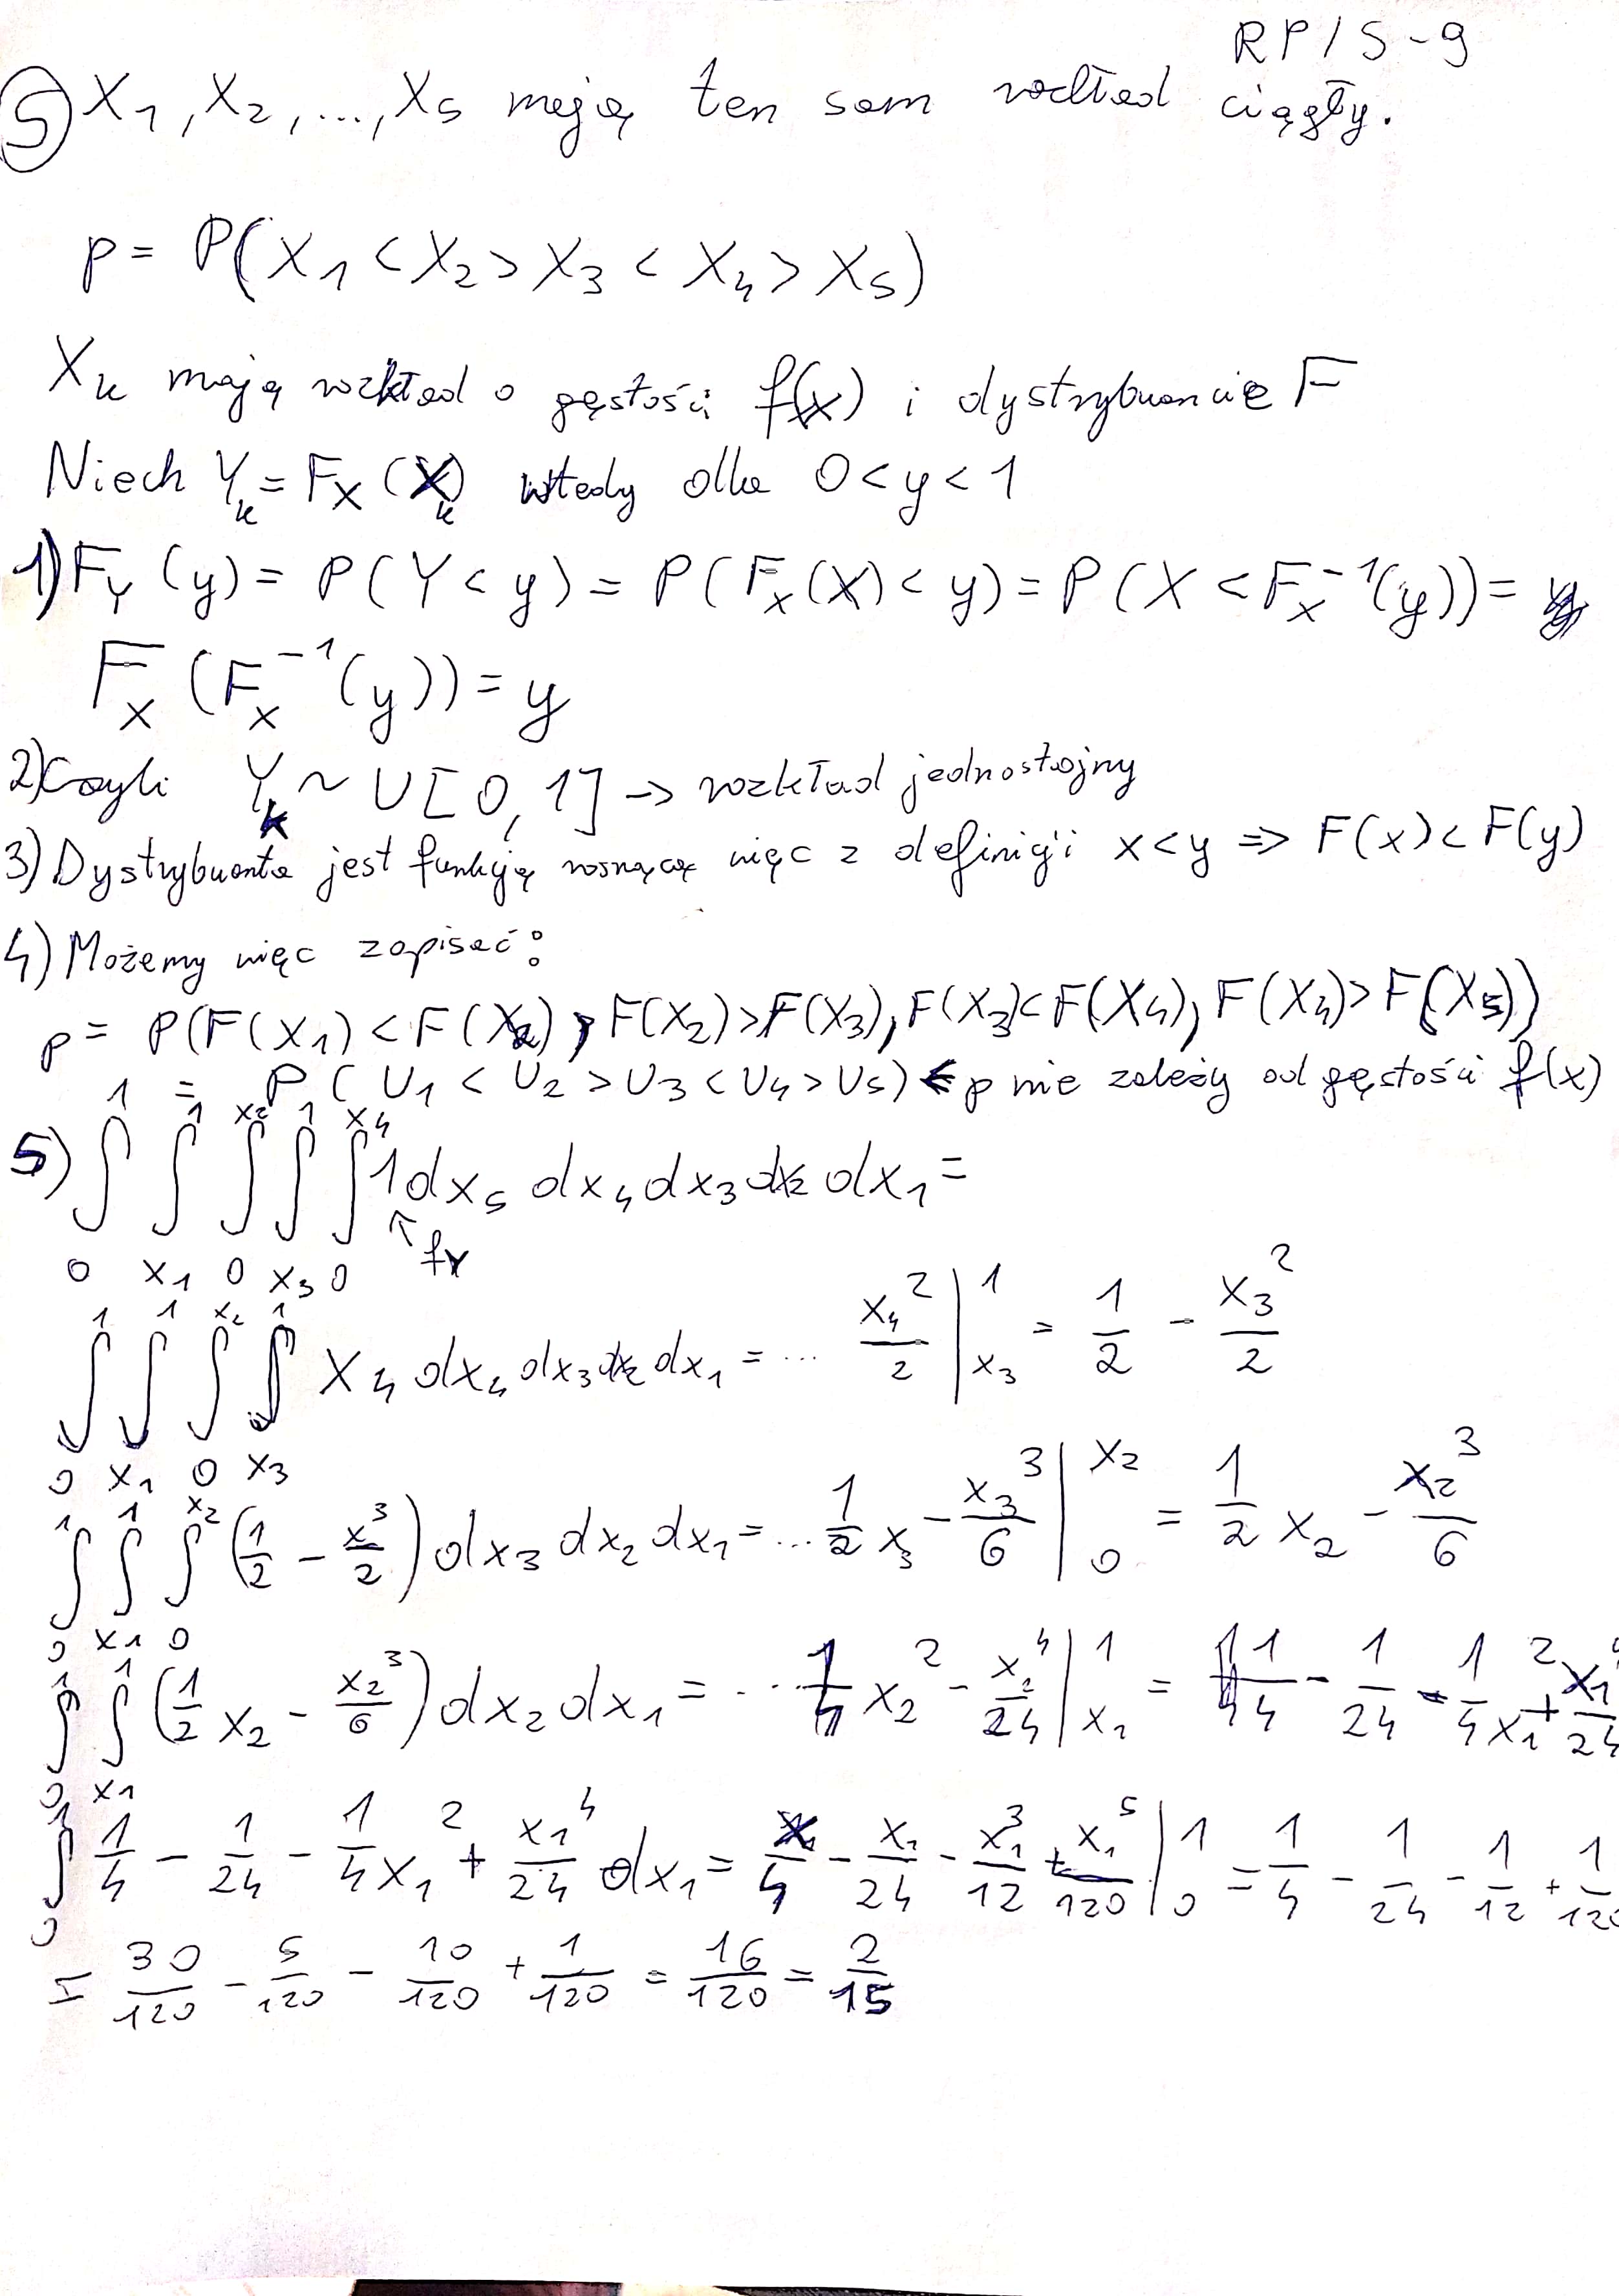 RPIS-9
⑤ X₁, X₂, ..., X₅ mają ten sam rozkład ciągły.
p = P(X₁ < X₂ > X₃ < X₄ > X₅)
X_k mają rozkład o gęstości f(x) i dystrybuancie F
Niech Y_k = F_X(X_k) wtedy dla 0 < y < 1
1) F_Y(y) = P(Y < y) = P(F_X(X) < y) = P(X < F_X⁻¹(y)) =
F_X(F_X⁻¹(y)) = y
2) Czyli Y_k ~ U[0, 1] → rozkład jednostajny
3) Dystrybuanta jest funkcją rosnącą więc z definicji x < y ⇒ F(x) < F(y)
4) Możemy więc zapisać:
p = P(F(X₁) < F(X₂), F(X₂) > F(X₃), F(X₃) < F(X₄), F(X₄) > F(X₅))
= P(U₁ < U₂ > U₃ < U₄ > U₅) ← p nie zależy od gęstości f(x)
5) ∫₀¹ ∫_{x₁}^1 ∫₀^{x₂} ∫_{x₃}^1 ∫₀^{x₄} 1 dx₅ dx₄ dx₃ dx₂ dx₁ =
↑ f_Y
∫₀¹ ∫_{x₁}^1 ∫₀^{x₂} ∫_{x₃}^1 x₄ dx₄ dx₃ dx₂ dx₁ = ... x₄²/2 |_{x₃}^1 = 1/2 - x₃²/2
∫₀¹ ∫_{x₁}^1 ∫₀^{x₂} (1/2 - x³/2) dx₃ dx₂ dx₁ = ... 1/2 x₃ - x₃³/6 |₀^{x₂} = 1/2 x₂ - x₂³/6
∫₀¹ ∫_{x₁}^1 (1/2 x₂ - x₂³/6) dx₂ dx₁ = ... 1/4 x₂² - x₂⁴/24 |_{x₁}^1 = 1/4 - 1/24 - 1/4 x₁² + x₁⁴/24
∫₀¹ 1/4 - 1/24 - 1/4 x₁² + x₁⁴/24 dx₁ = x₁/4 - x₁/24 - x₁³/12 + x₁⁵/120 |₀¹ = 1/4 - 1/24 - 1/12 + 1/120
= 30/120 - 5/120 - 10/120 + 1/120 = 16/120 = 2/15